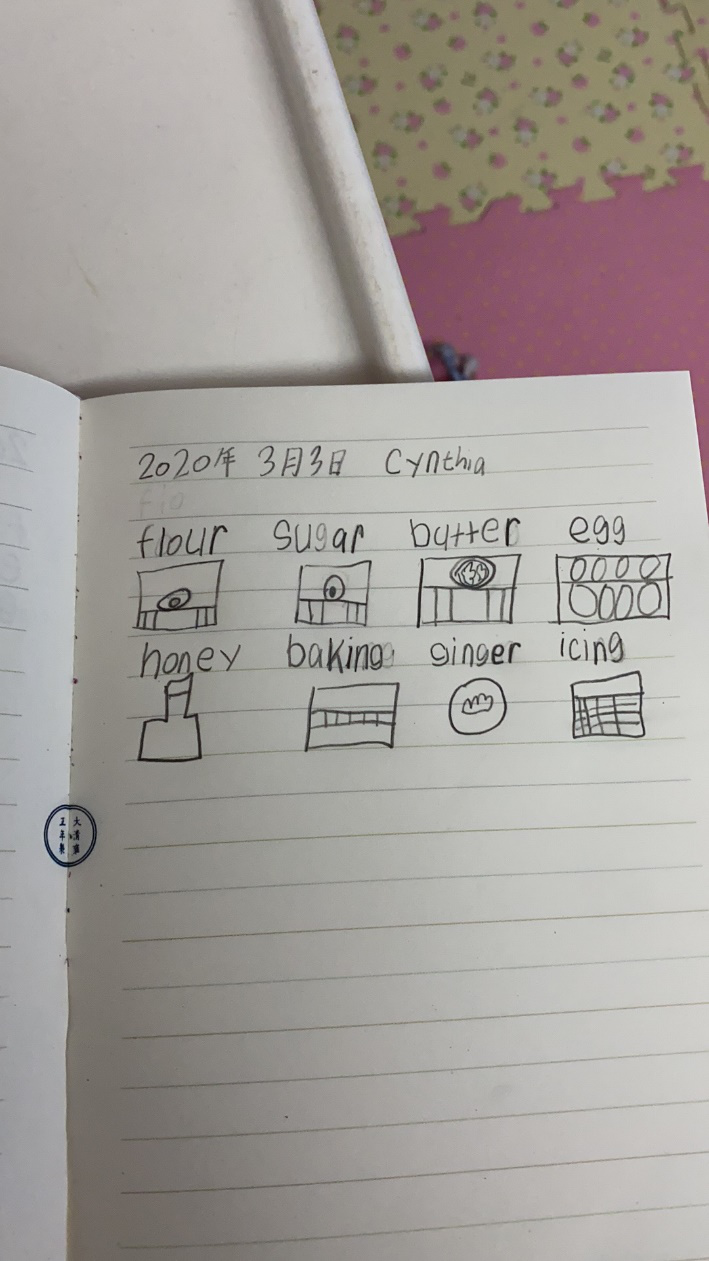 2020年 3月3日 Cynthia
flo
flour sugar butter egg
honey baking ginger icing